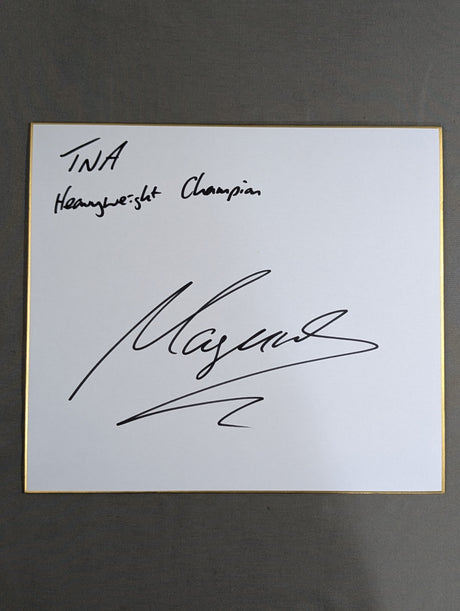 TNA
Heavyweight Champion
Magnus